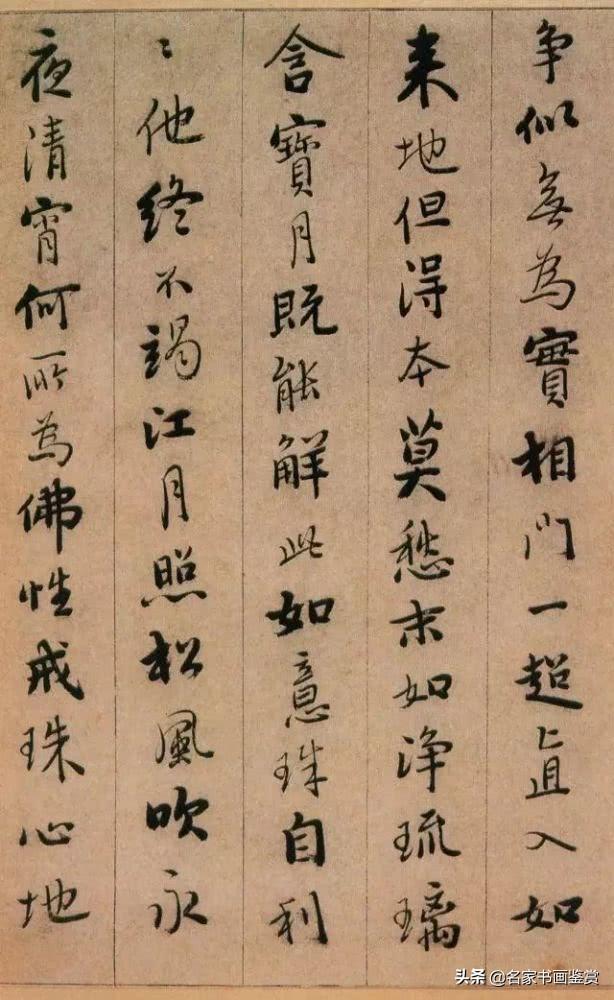 争似無為實相門一超直入如
来地但得本莫愁末如淨琉璃
含寶月既能解此如意珠自利
〻他終不竭江月照松風吹永
夜清宵何所為佛性戒珠心地
头条 @名家书画鉴赏